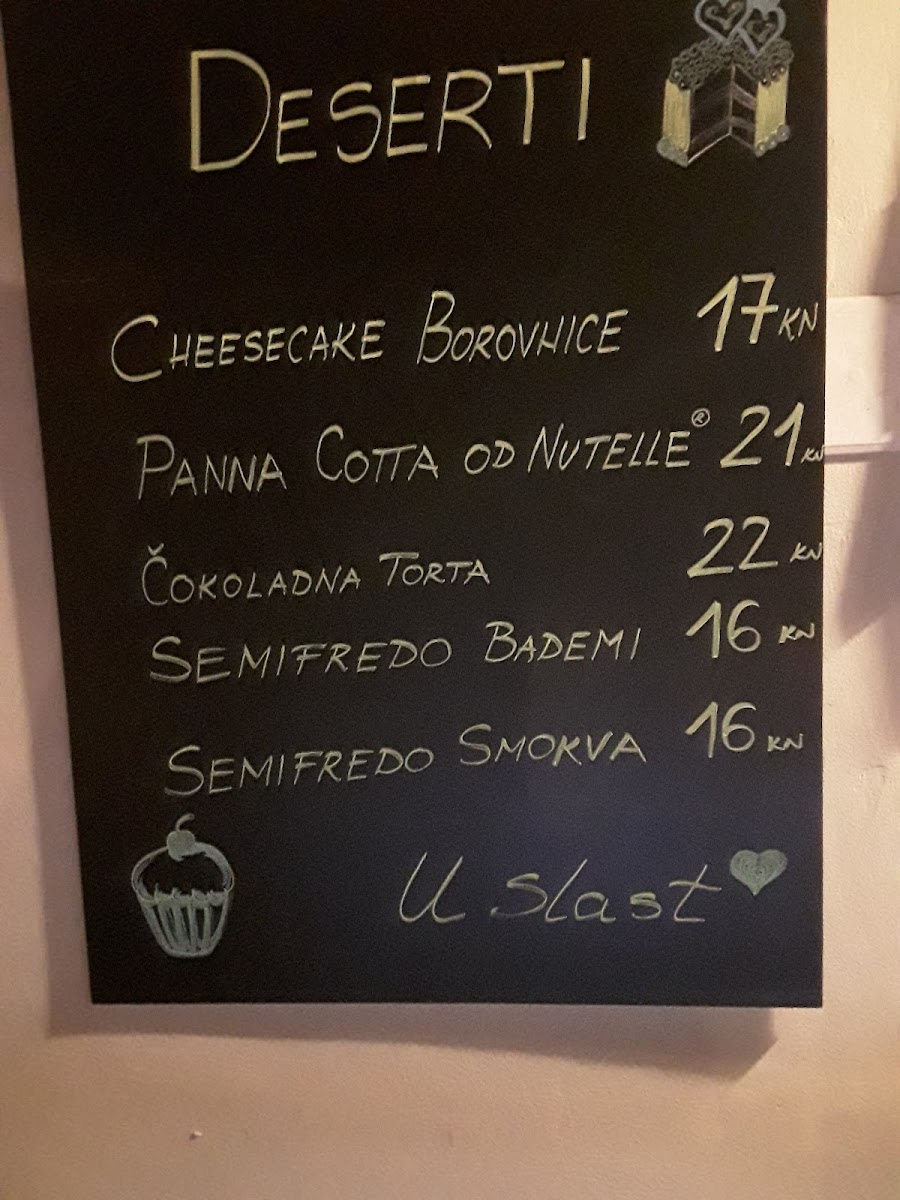 DESERTI
CHEESECAKE BOROVNICE 17 KN
PANNA COTTA OD NUTELLE® 21 KN
ČOKOLADNA TORTA 22 KN
SEMIFREDO BADEMI 16 KN
SEMIFREDO SMOKVA 16 KN
U slast